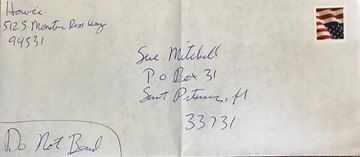 Howie
5125 Way
94531
Sue Mitchell
P O Box 31
Saint Peters, fl
33731
Do Not Bend